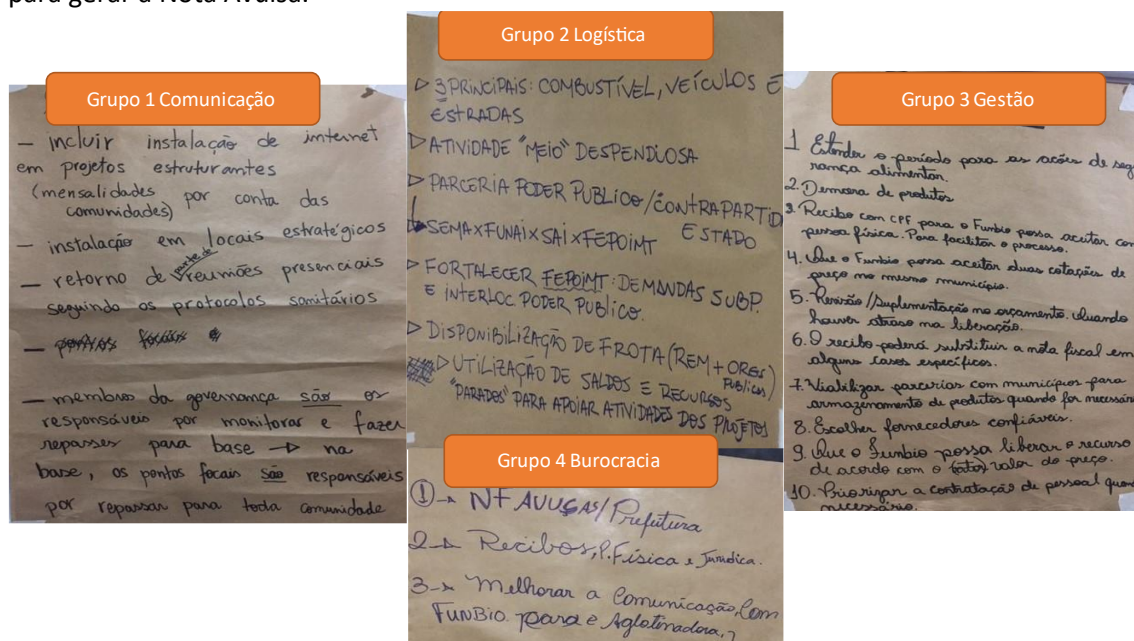 para gerar a Nota Avulsa.
Grupo 1 Comunicação
— incluir instalação de internet
em projetos estruturantes
(mensalidades por conta das
comunidades)
— instalação em locais estratégicos
— retorno de parte de reuniões presenciais
seguindo os protocolos sanitários
— pontos focais
— membros da governança são os
responsáveis por monitorar e fazer
repasses para base → na
base, os pontos focais são responsáveis
por repassar para toda comunidade
Grupo 2 Logística
▷ 3 PRINCIPAIS: COMBUSTÍVEL, VEÍCULOS E
ESTRADAS
▷ ATIVIDADE "MEIO" DESPENDIOSA
▷ PARCERIA PODER PUBLICO/CONTRAPARTID
ESTADO
SEMAXFUNAIXSAIXFEPOIMT
▷ FORTALECER FEPOIMT: DEMANDAS SUBP.
E INTERLOC. PODER PUBLICO.
▷ DISPONIBILIZAÇÃO DE FROTA (REM + ORGS
PUBLICOS)
▷ UTILIZAÇÃO DE SALDOS E RECURSOS
"PARADOS" PARA APOIAR ATIVIDADES DOS PROJETOS
Grupo 4 Burocracia
① → NF AVULSAS/Prefeitura
2 → Recibos, P. Física e Jurídica.
3 → Melhorar a Comunicação, Com
FUNBIO para e Aglotinadora,
Grupo 3 Gestão
1 Estender o período para as ações de segu
rança alimentar.
2. Demora de produtos
3. Recibo com CPF para o Funbio possa aceitar com
pessoa física. Para facilitar o processo.
4. Que o Funbio possa aceitar duas cotações de
preço no mesmo município.
5. Revisão/Suplementação no orçamento. Quando
houver atraso na liberação.
6. O recibo poderá substituir a nota fiscal em
alguns casos específicos.
7. Viabilizar parcerias com municípios para
armazenamento de produtos quando for necessário
8. Escolher fornecedores confiáveis.
9. Que o Funbio possa liberar o recurso
de acordo com o valor do preço.
10. Priorizar a contratação de pessoal quan
necessário.